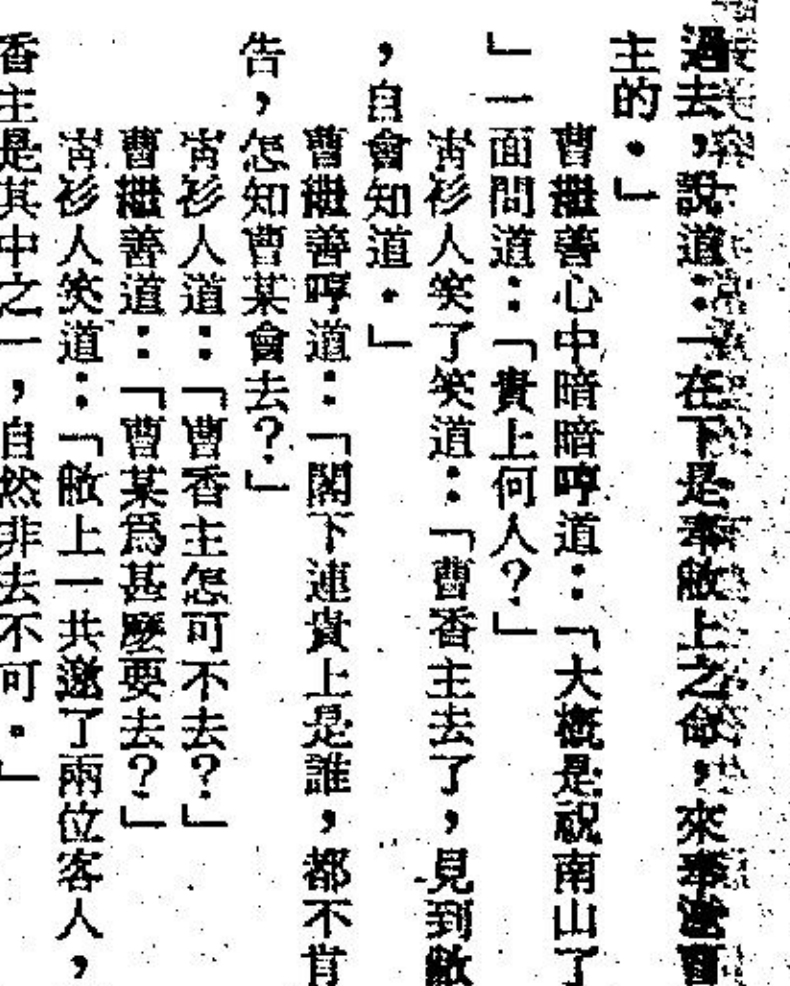 過去,說道:「在下是奉敝上之命,來奉邀曹
主的。」
曹繼善心中暗暗哼道:「大概是祝南山了
」一面問道:「貴上何人?」
青衫人笑了笑道:「曹香主去了,見到敝
,自會知道。」
曹繼善哼道:「閣下連貴上是誰,都不肯
告,怎知曹某會去?」
青衫人道:「曹香主怎可不去?」
曹繼善道:「曹某爲甚麼要去?」
青衫人笑道:「敝上一共邀了兩位客人,
香主是其中之一,自然非去不可。」